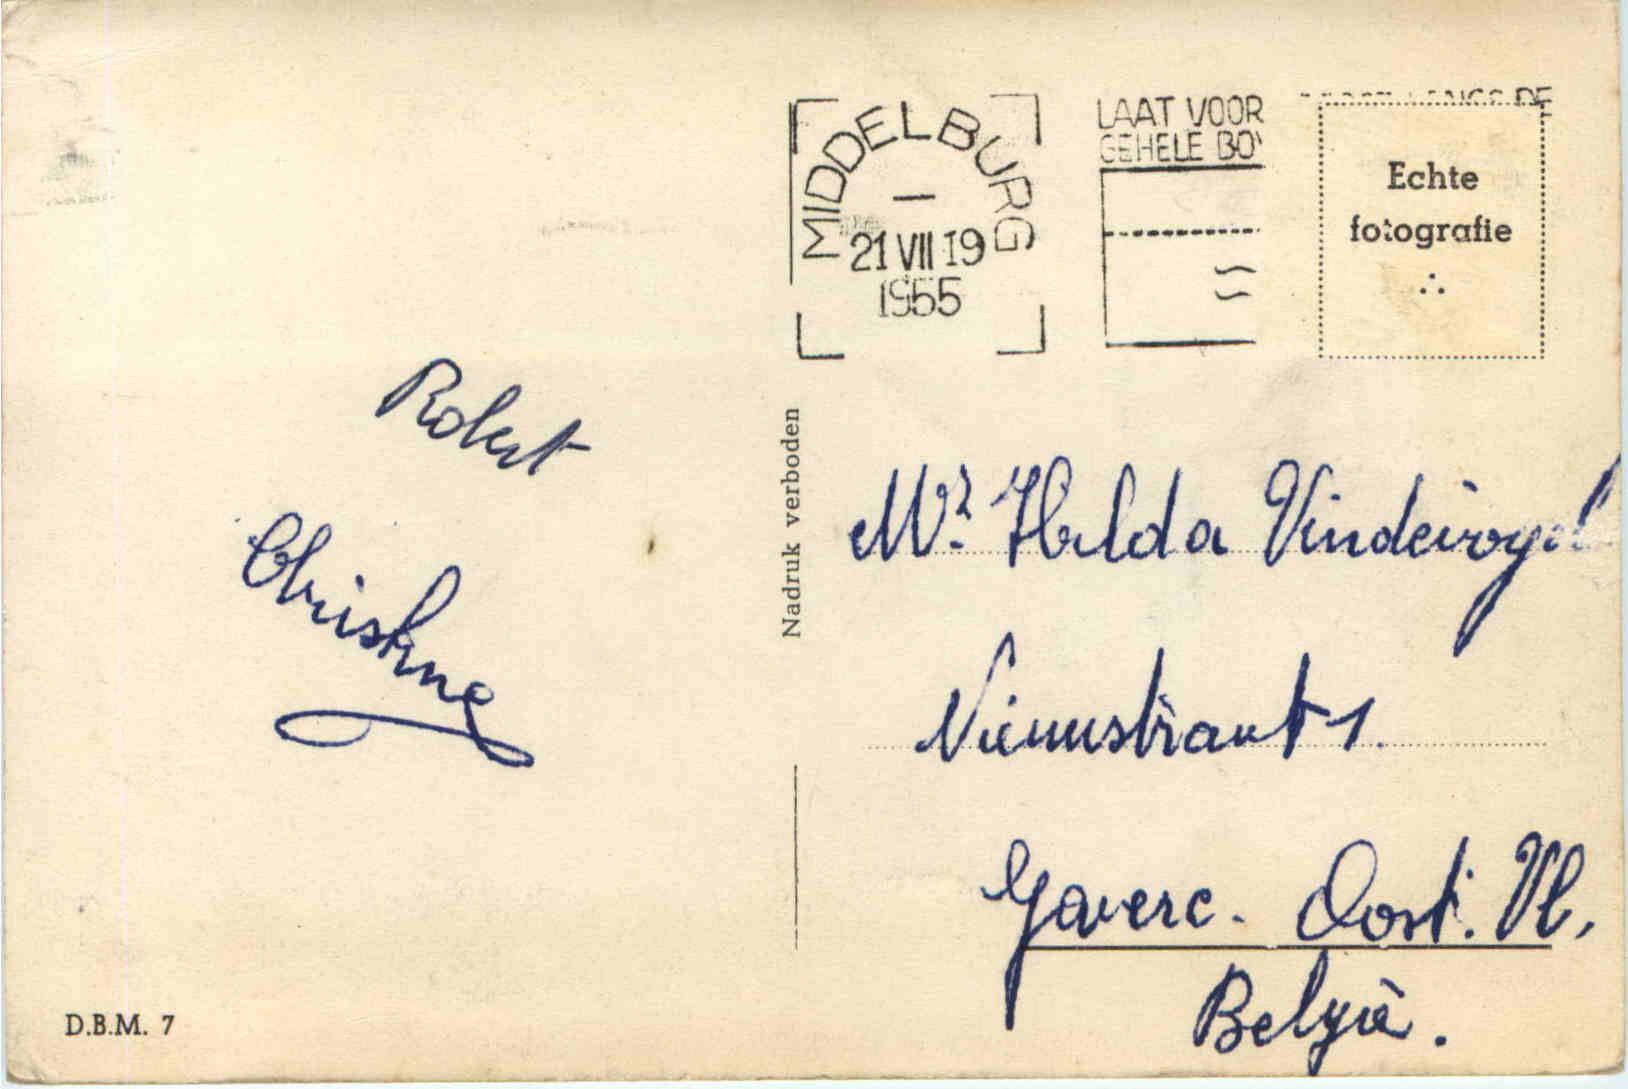 MIDDELBURG
21 VII 19
1955
LAAT VOOR
GEHELE BO
DE
Echte
fotografie
Nadruk verboden
Robert
Christine
Mr. Hilda Vindevogel
Nieuwstraat 1.
Gavere. Oost. Vl.
België.
D.B.M. 7